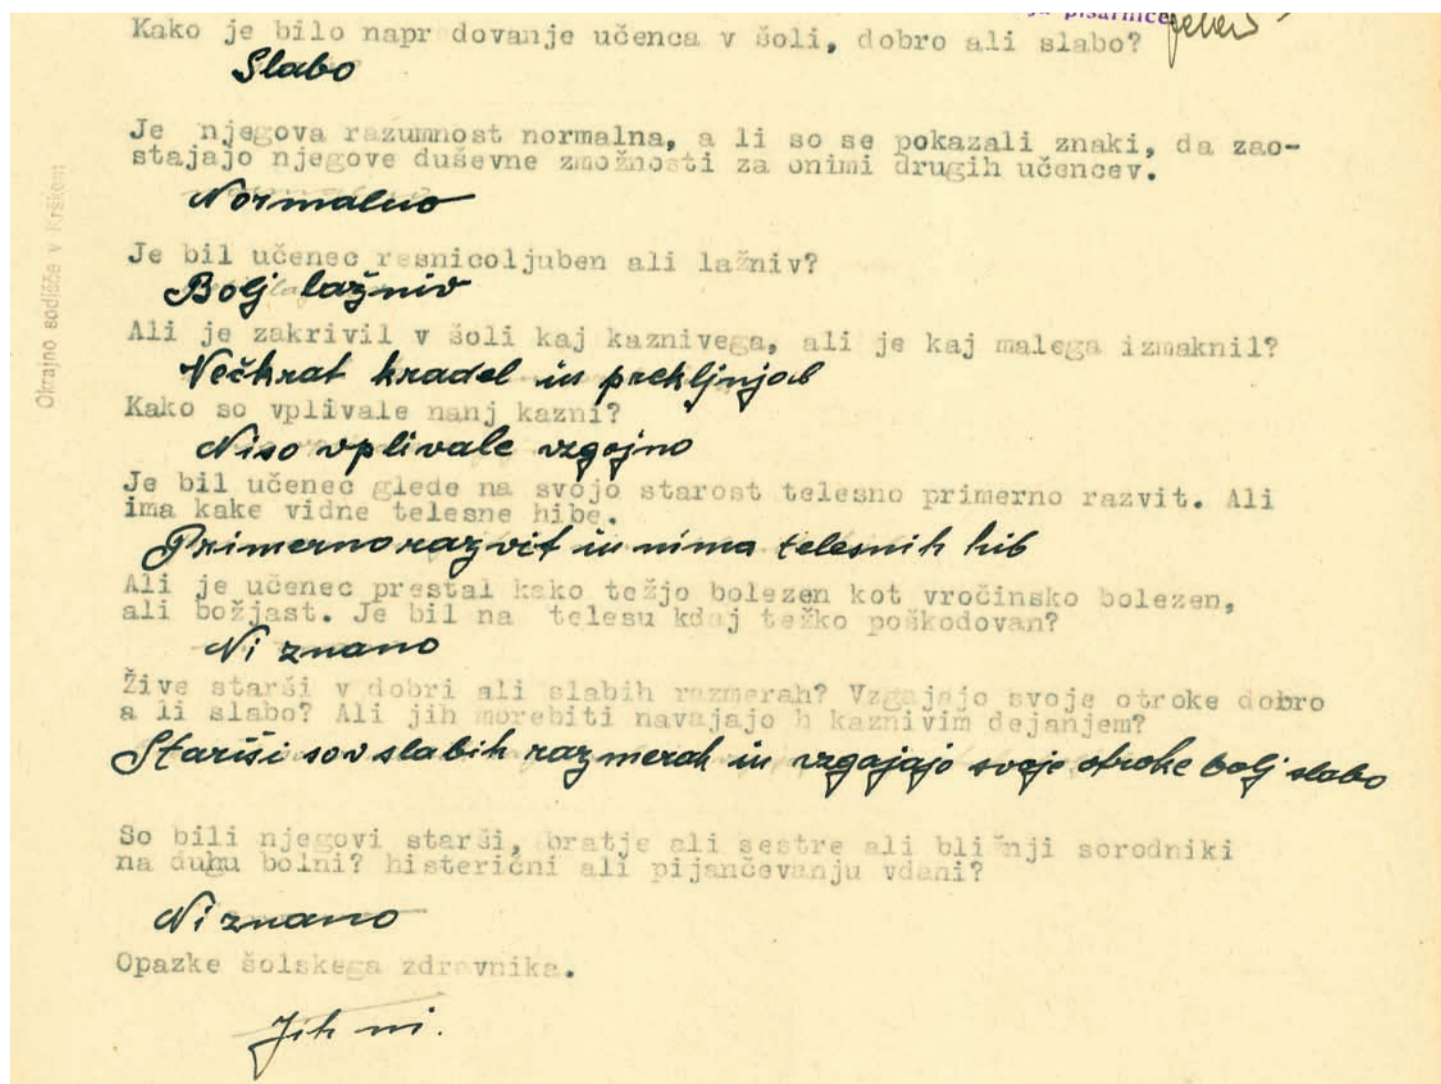 pisarnice
Kako je bilo napr dovanje učenca v šoli, dobro ali slabo?
Slabo
Je njegova razumnost normalna, a li so se pokazali znaki, da zao-
stajajo njegove duševne zmožnosti za onimi drugih učencev.
Normalno
Je bil učenec resnicoljuben ali lažniv?
Bolj lažniv
Ali je zakrivil v šoli kaj kaznivega, ali je kaj malega izmaknil?
Večkrat kradel in preklinjal
Kako so vplivale nanj kazni?
Niso vplivale vzgojno
Je bil učenec glede na svojo starost telesno primerno razvit. Ali
ima kake vidne telesne hibe.
Primerno razvit in nima telesnih hib
Ali je učenec prestal kako težjo bolezen kot vročinsko bolezen,
ali božjast. Je bil na telesu kdaj težko poškodovan?
Ni znano
Žive starši v dobri ali slabih razmerah? Vzgajajo svoje otroke dobro
a li slabo? Ali jih morebiti navajajo h kaznivim dejanjem?
Stariši so v slabih razmerah in vzgajajo svoje otroke bolj slabo
So bili njegovi starši, bratje ali sestre ali bližnji sorodniki
na duhu bolni? histerični ali pijančevanju vdani?
Ni znano
Opazke šolskega zdravnika.
Jih ni.
Okrajno sodišče v Krškem